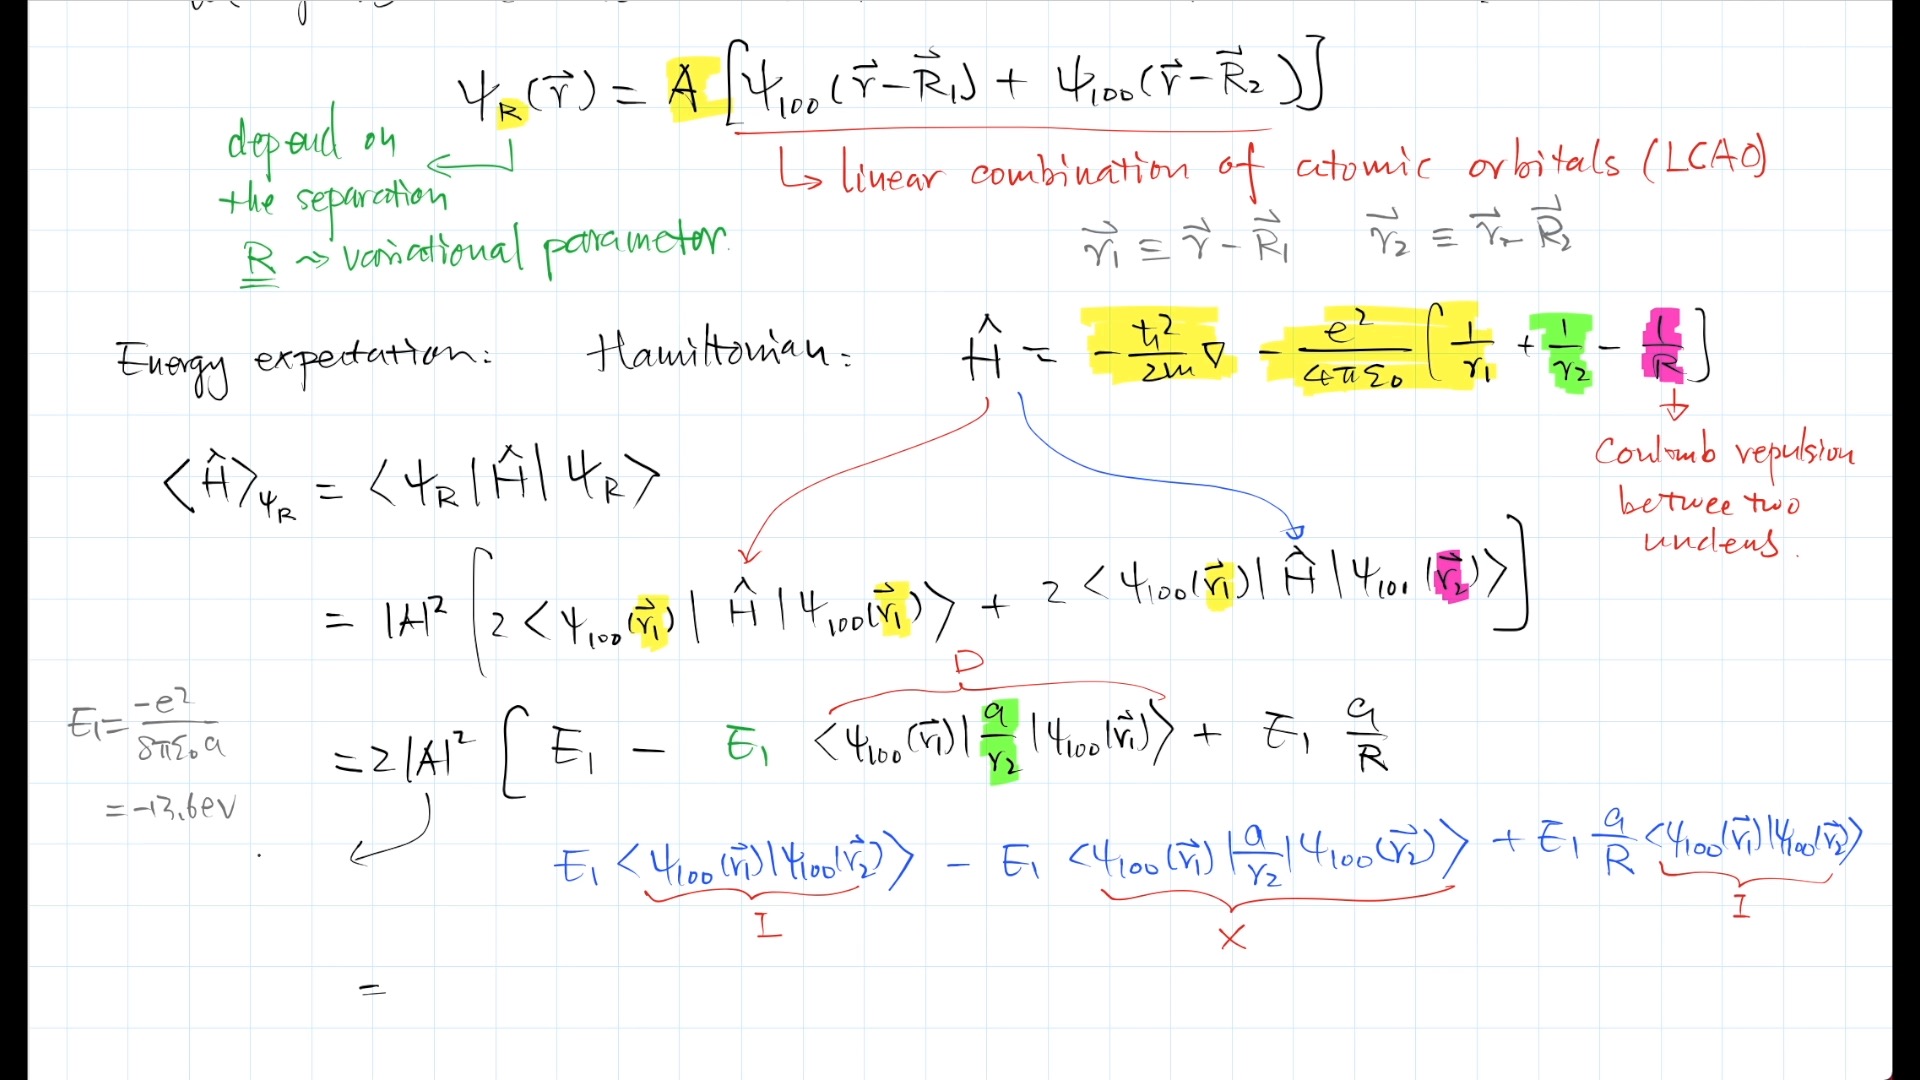 ψ_R(r⃗) = A [ψ₁₀₀(r⃗-R⃗₁) + ψ₁₀₀(r⃗-R⃗₂)]
depend on
the separation
R ~> variational parameter.
↳ linear combination of atomic orbitals (LCAO)
r⃗₁ ≡ r⃗ - R⃗₁ r⃗₂ ≡ r⃗ - R⃗₂
Energy expectation: Hamiltonian: Ĥ = -ħ²/2m ∇ - e²/4πε₀ [1/r₁ + 1/r₂ - 1/R]
Coulomb repulsion
betwee two
⟨Ĥ⟩_ψ_R = ⟨ψ_R|Ĥ|ψ_R⟩
= |A|² [2⟨ψ₁₀₀(r⃗₁)|Ĥ|ψ₁₀₀(r⃗₁)⟩ + 2⟨ψ₁₀₀(r⃗₁)|Ĥ|ψ₁₀₀(r⃗₂)⟩]
D
E₁ = -e²/8πε₀a
= -13.6eV
= 2|A|² [E₁ - E₁ ⟨ψ₁₀₀(r⃗₁)|a/r₂|ψ₁₀₀(r⃗₁)⟩ + E₁ a/R
E₁⟨ψ₁₀₀(r⃗₁)|ψ₁₀₀(r⃗₂)⟩ - E₁⟨ψ₁₀₀(r⃗₁)|a/r₂|ψ₁₀₀(r⃗₂)⟩ + E₁ a/R ⟨ψ₁₀₀(r⃗₁)|ψ₁₀₀(r⃗₂)⟩
I X I
=